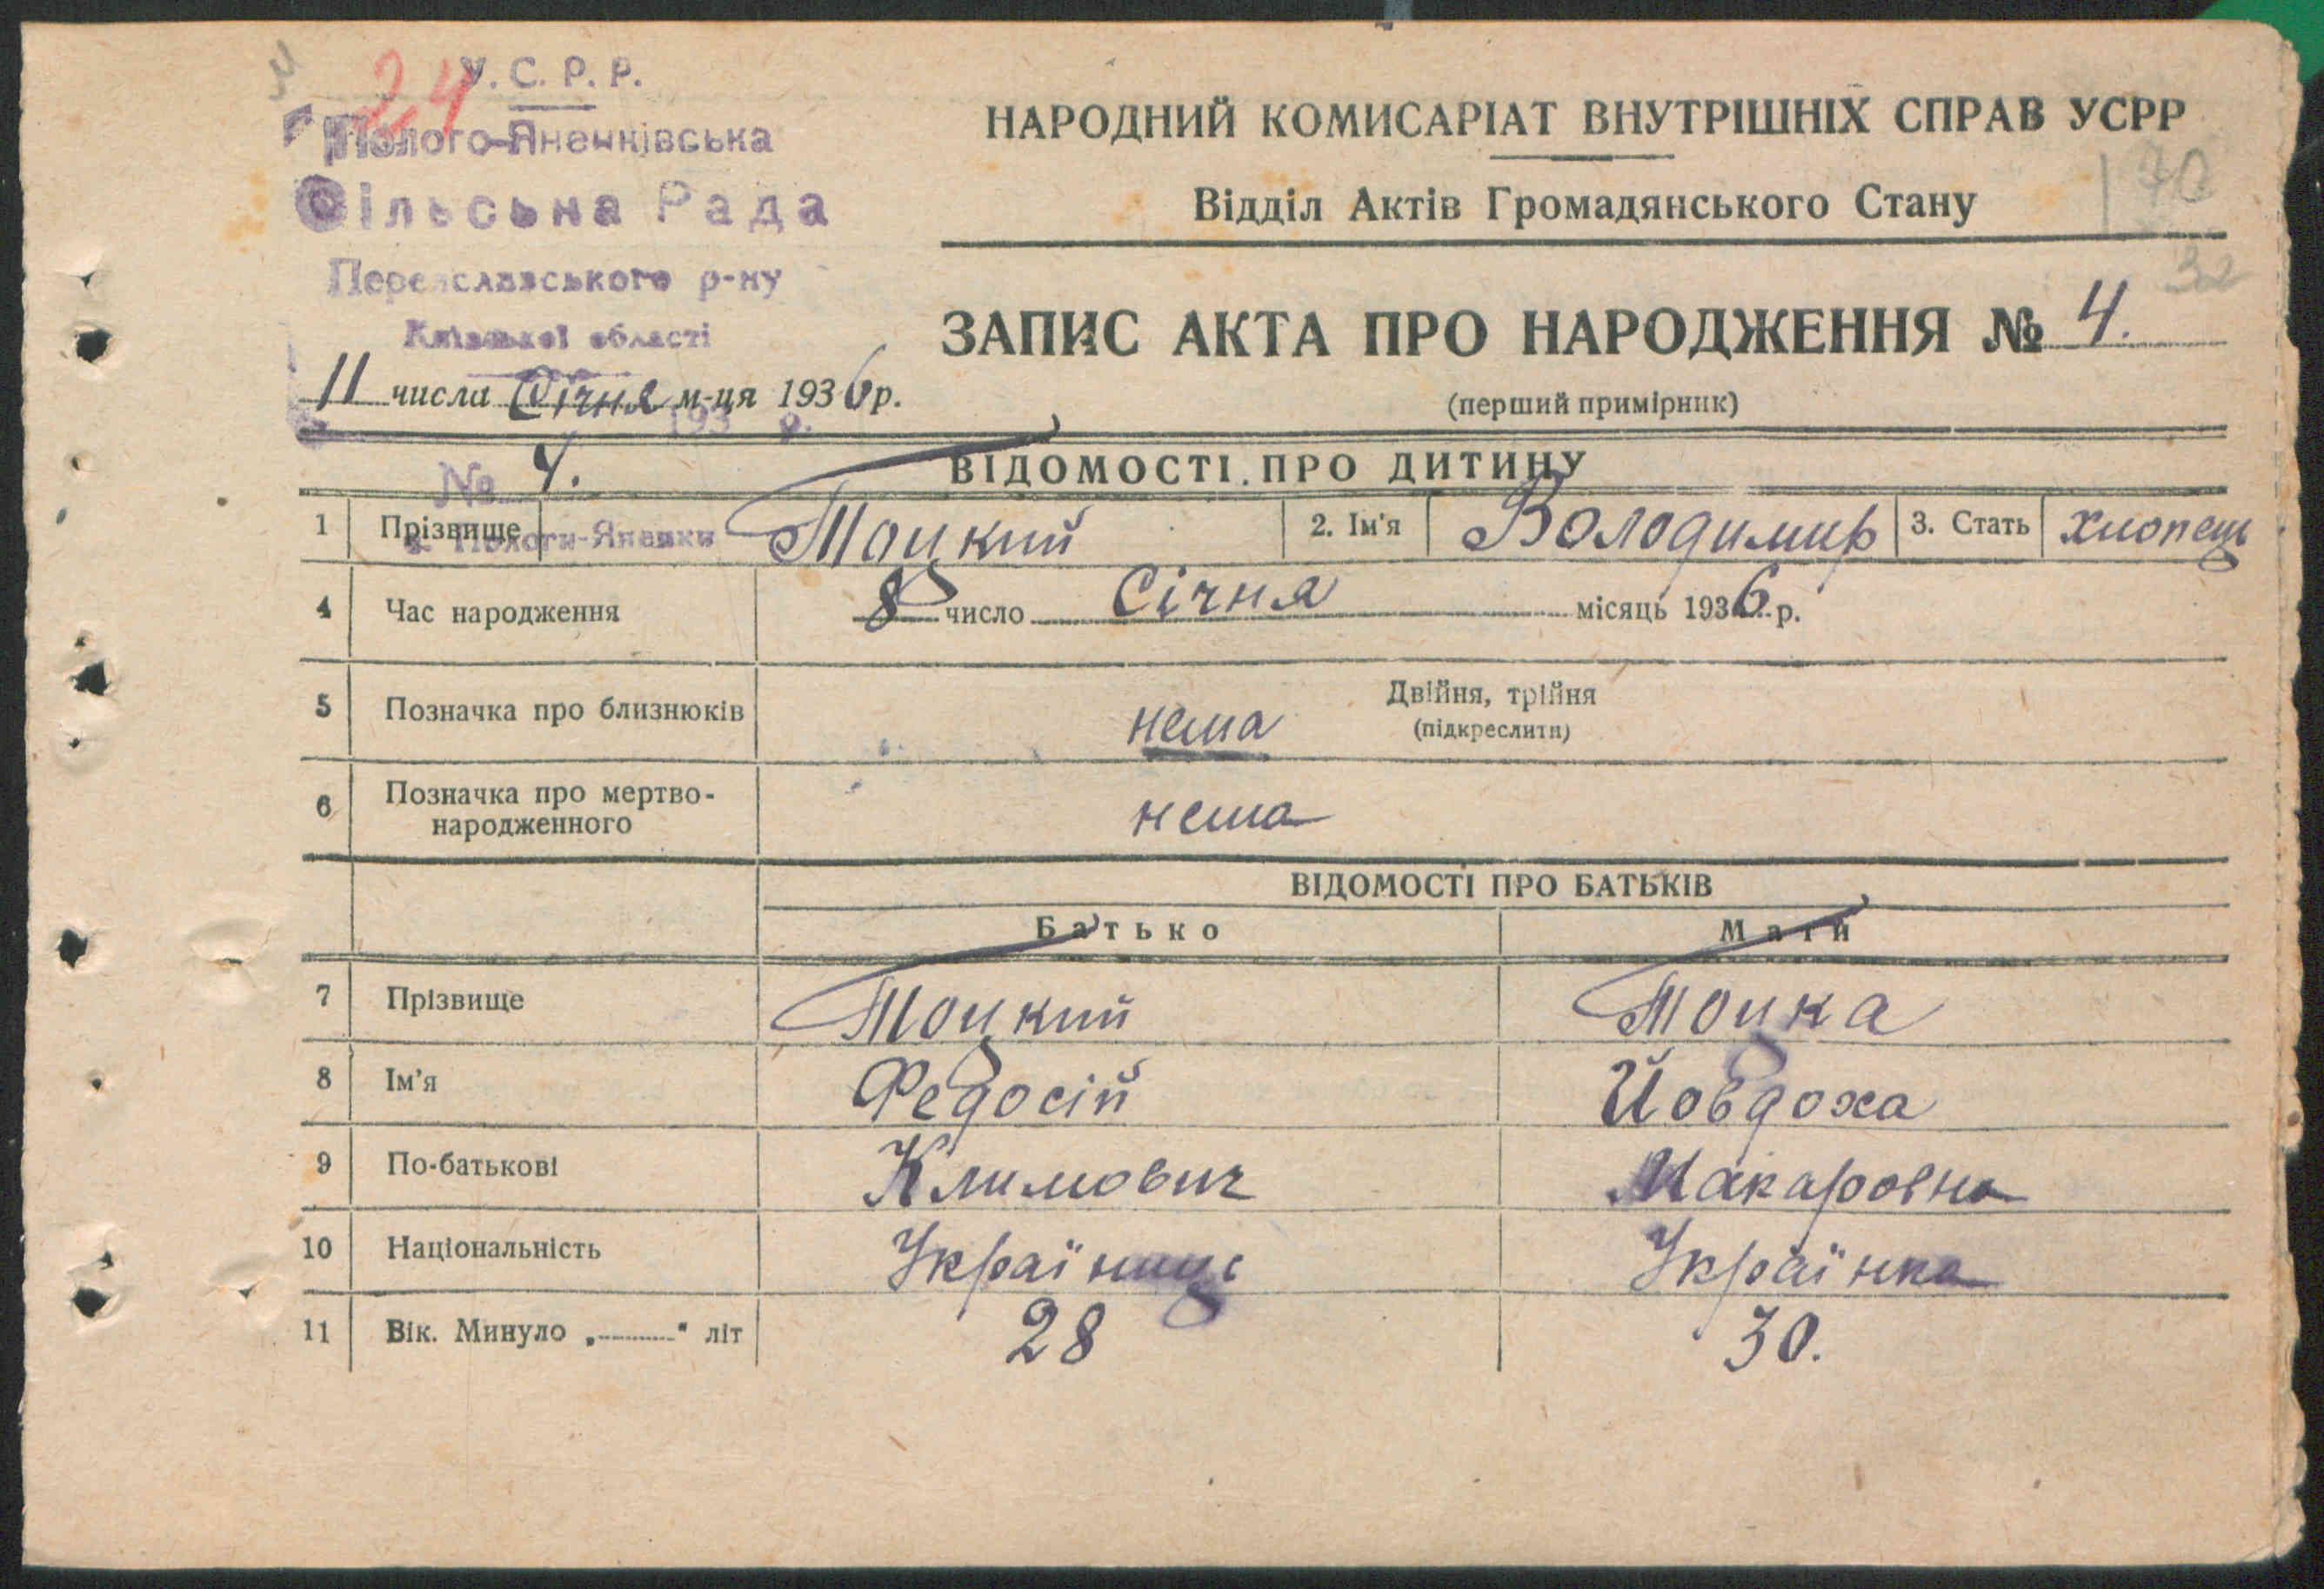 24
У. С. Р. Р.
Полого-Яненківська
Сільська Рада
Переяславського р-ну
Київської області
11 числа Січня м-ця 1936 р.
193 р.
№ 4.
с. Пологи-Яненки
НАРОДНИЙ КОМИСАРІАТ ВНУТРІШНІХ СПРАВ УСРР
Відділ Актів Громадянського Стану
170
32
ЗАПИС АКТА ПРО НАРОДЖЕННЯ № 4.
(перший примірник)
ВІДОМОСТІ ПРО ДИТИНУ
1 Прізвище Тоцкий 2. Ім'я Володимир 3. Стать хлопець
4 Час народження 8 число Січня місяць 1936 р.
5 Позначка про близнюків нема Двійня, трійня
(підкреслити)
6 Позначка про мертво-
народженного нема
ВІДОМОСТІ ПРО БАТЬКІВ
Батько Мати
7 Прізвище Тоцкий Тоцка
8 Ім'я Федосій Йовдоха
9 По-батькові Климович Макаровна
10 Національність Українець Українка
11 Вік. Минуло „ " літ 28 30.